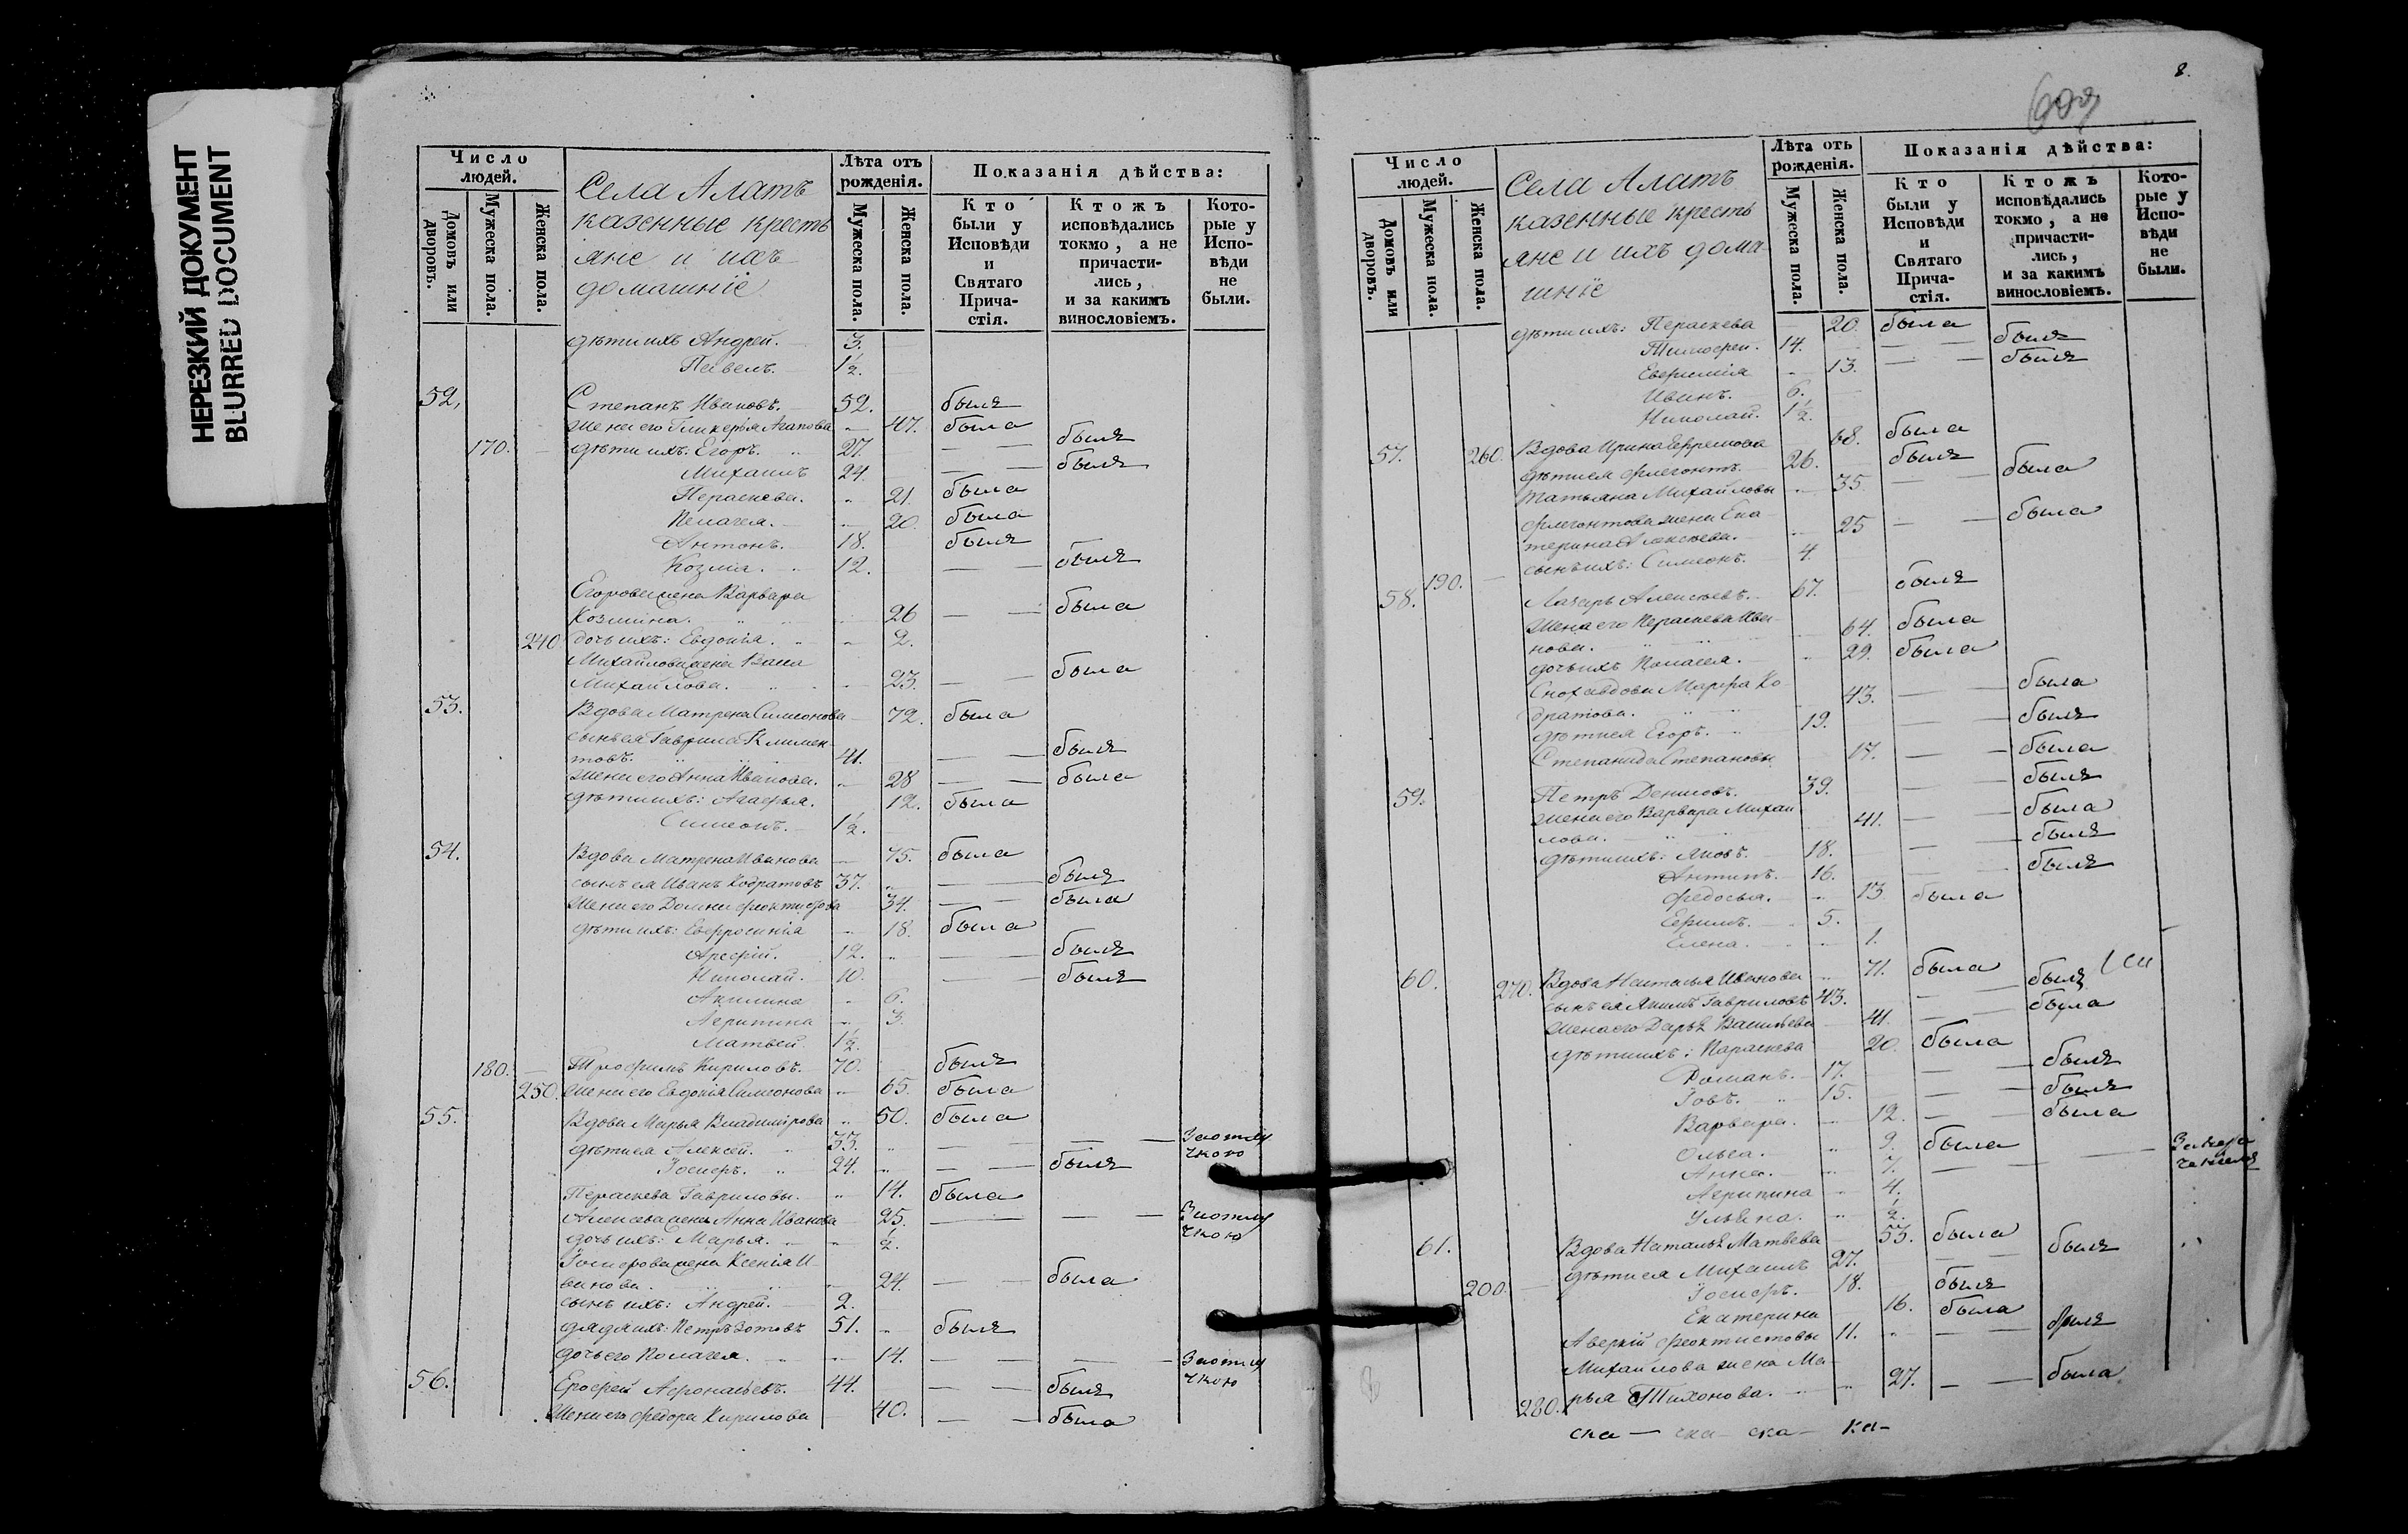 НЕРЕЗКИЙ ДОКУМЕНТ
BLURRED DOCUMENT
Число людей.
Домовъ или дворовъ.
Мужеска пола.
Женска пола.
Села Алатъ
казенные кресть
яне и ихъ
домашніе
Лѣта отъ рожденія.
Мужеска пола.
Женска пола.
Показанія дѣйства:
Кто были у Исповѣди и Святаго Прича-стія.
Ктожъ исповѣдались токмо, а не причасти-лись, и за какимъ винословіемъ.
Кото-рые у Испо-вѣди не были.
дѣти ихъ Андрей. 3.
Павелъ. 1½.
52, Степанъ Ивановъ. 52. былъ
жена его Гликерья Агапова 47. была
170. дѣти ихъ: Егоръ. 27. — — былъ
Михаилъ 24. — — былъ
Параскева. 21. была
Пелагея. 20. была
Антонъ. 18. былъ
Козма. 12. — — былъ
Егорова жена Варвара
Козмина. 26 — — была
240 дочь ихъ: Евдокія. 2.
Михайлова жена Васса
Михайлова. 23. — — была
53. Вдова Матрена Симеонова 72. была
сынъ ея Гаврила Климен-
товъ. 41. — — былъ
жена его Анна Иванова. 28 — — была
дѣти ихъ: Агафья. 12. была
Симеонъ. 1½.
54. Вдова Матрена Иванова 75. была
сынъ ея Иванъ Кодратовъ 37. — — былъ
жена его Домна Феоктистова 34. — — была
дѣти ихъ: Евфросинія 18. была
Арефій. 12. — — былъ
Николай. 10. — — былъ
Акилина 6.
Агрипина 3.
Матвей 1½.
180. — Трофимъ Кириловъ. 70. былъ
250. жена его Евдокія Симеонова 65. была
55. Вдова Марья Владимірова 50. была
дѣти ея Алексей. 33. — — — За отлу
чкою
Іосифъ. 24. — — былъ
Параскева Гавриловы. 14. была
Алексева жена Анна Иванова 25. — — — За отлу
чкою
дочь ихъ: Марья. ½.
Іосифова жена Ксенія И-
ванова. 24. — — была
сынъ ихъ: Андрей. 2.
дядя ихъ: Петръ Зотовъ 51. былъ
дочь его Пелагея. 14. — — — За отлу
чкою
56. Ерофей Афонасьевъ. 44. — — былъ
Жена его Федора Кирилова 40. — — была
8.
Число людей.
Домовъ или дворовъ.
Мужеска пола.
Женска пола.
Села Алатъ
казенные кресть
яне и ихъ дома-
шніе
Лѣта отъ рожденія.
Мужеска пола.
Женска пола.
Показанія дѣйства:
Кто были у Исповѣди и Святаго Прича-стія.
Ктожъ исповѣдались токмо, а не причасти-лись, и за какимъ винословіемъ.
Кото-рые у Испо-вѣди не были.
дѣти ихъ: Параскева 20. была
Тимофей. 14. — — былъ
Евфимія 13. — — былъ
Иванъ. 6.
Николай. 1½.
57. 260. Вдова Ирина Ефремова 68. была
дѣти ея Флегонтъ. 26. былъ
Татьяна Михайловы 35. — — была
Флегонтова жена Ека-
терина Алексеева. 25 — — была
сынъ ихъ: Симеонъ. 4.
58. 190. — Лазарь Алексеевъ. 67. былъ
Жена его Параскева Ива-
нова. 64. была
дочь ихъ Пелагея. 29. была
Сноха вдова Марфа Ко-
дратова. 43. — — была
дѣти ея Егоръ. 19. — — былъ
Степанида Степановы 17. — — была
59. Петръ Денисовъ. 39. — — былъ
Жена его Варвара Михаи
лова. 41. — — была
дѣти ихъ: Яковъ. 18. — — былъ
Антипъ. 16. — — былъ
Федосья. 13 была
Ефимъ. 5.
Елена. 1.
60. 270. Вдова Наталья Иванова 71. была
сынъ ея Якимъ Гавриловъ 43. — былъ
жена его Дарья Васильева 41. — — была
дѣти ихъ: Параскева 20. была
Романъ. 17. — — былъ
Іовъ. 15. — — былъ
Варвара. 12. — — была
Ольга. 9. была
Анна. 7. — — —
Агрипина 4.
Ульяна. ½.
61. Вдова Наталья Матвеева 53. была
дѣти ея Михаилъ 27. — — былъ
200. — Іосифъ. 18. былъ
Екатерина 16. была
Аверкій Феоктистовы 11. — — былъ
Михайлова жена Ма-
280. рья Тихонова. 27. — — была
ска — ска — ка-